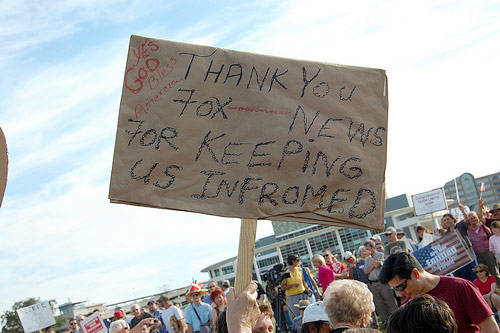 YES
GOD Bless
America
THANK YOU
FOX NEWS
FOR KEEPING
US INFROMED